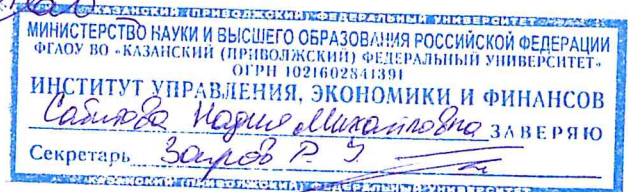 КАЗАНСКИЙ (ПРИВОЛЖСКИЙ) ФЕДЕРАЛЬНЫЙ УНИВЕРСИТЕТ
МИНИСТЕРСТВО НАУКИ И ВЫСШЕГО ОБРАЗОВАНИЯ РОССИЙСКОЙ ФЕДЕРАЦИИ
ФГАОУ ВО «КАЗАНСКИЙ (ПРИВОЛЖСКИЙ) ФЕДЕРАЛЬНЫЙ УНИВЕРСИТЕТ»
ОГРН 1021602841391
ИНСТИТУТ УПРАВЛЕНИЯ, ЭКОНОМИКИ И ФИНАНСОВ
Михайловна ЗАВЕРЯЮ
Секретарь
КАЗАНСКИЙ (ПРИВОЛЖСКИЙ) ФЕДЕРАЛЬНЫЙ УНИВЕРСИТЕТ